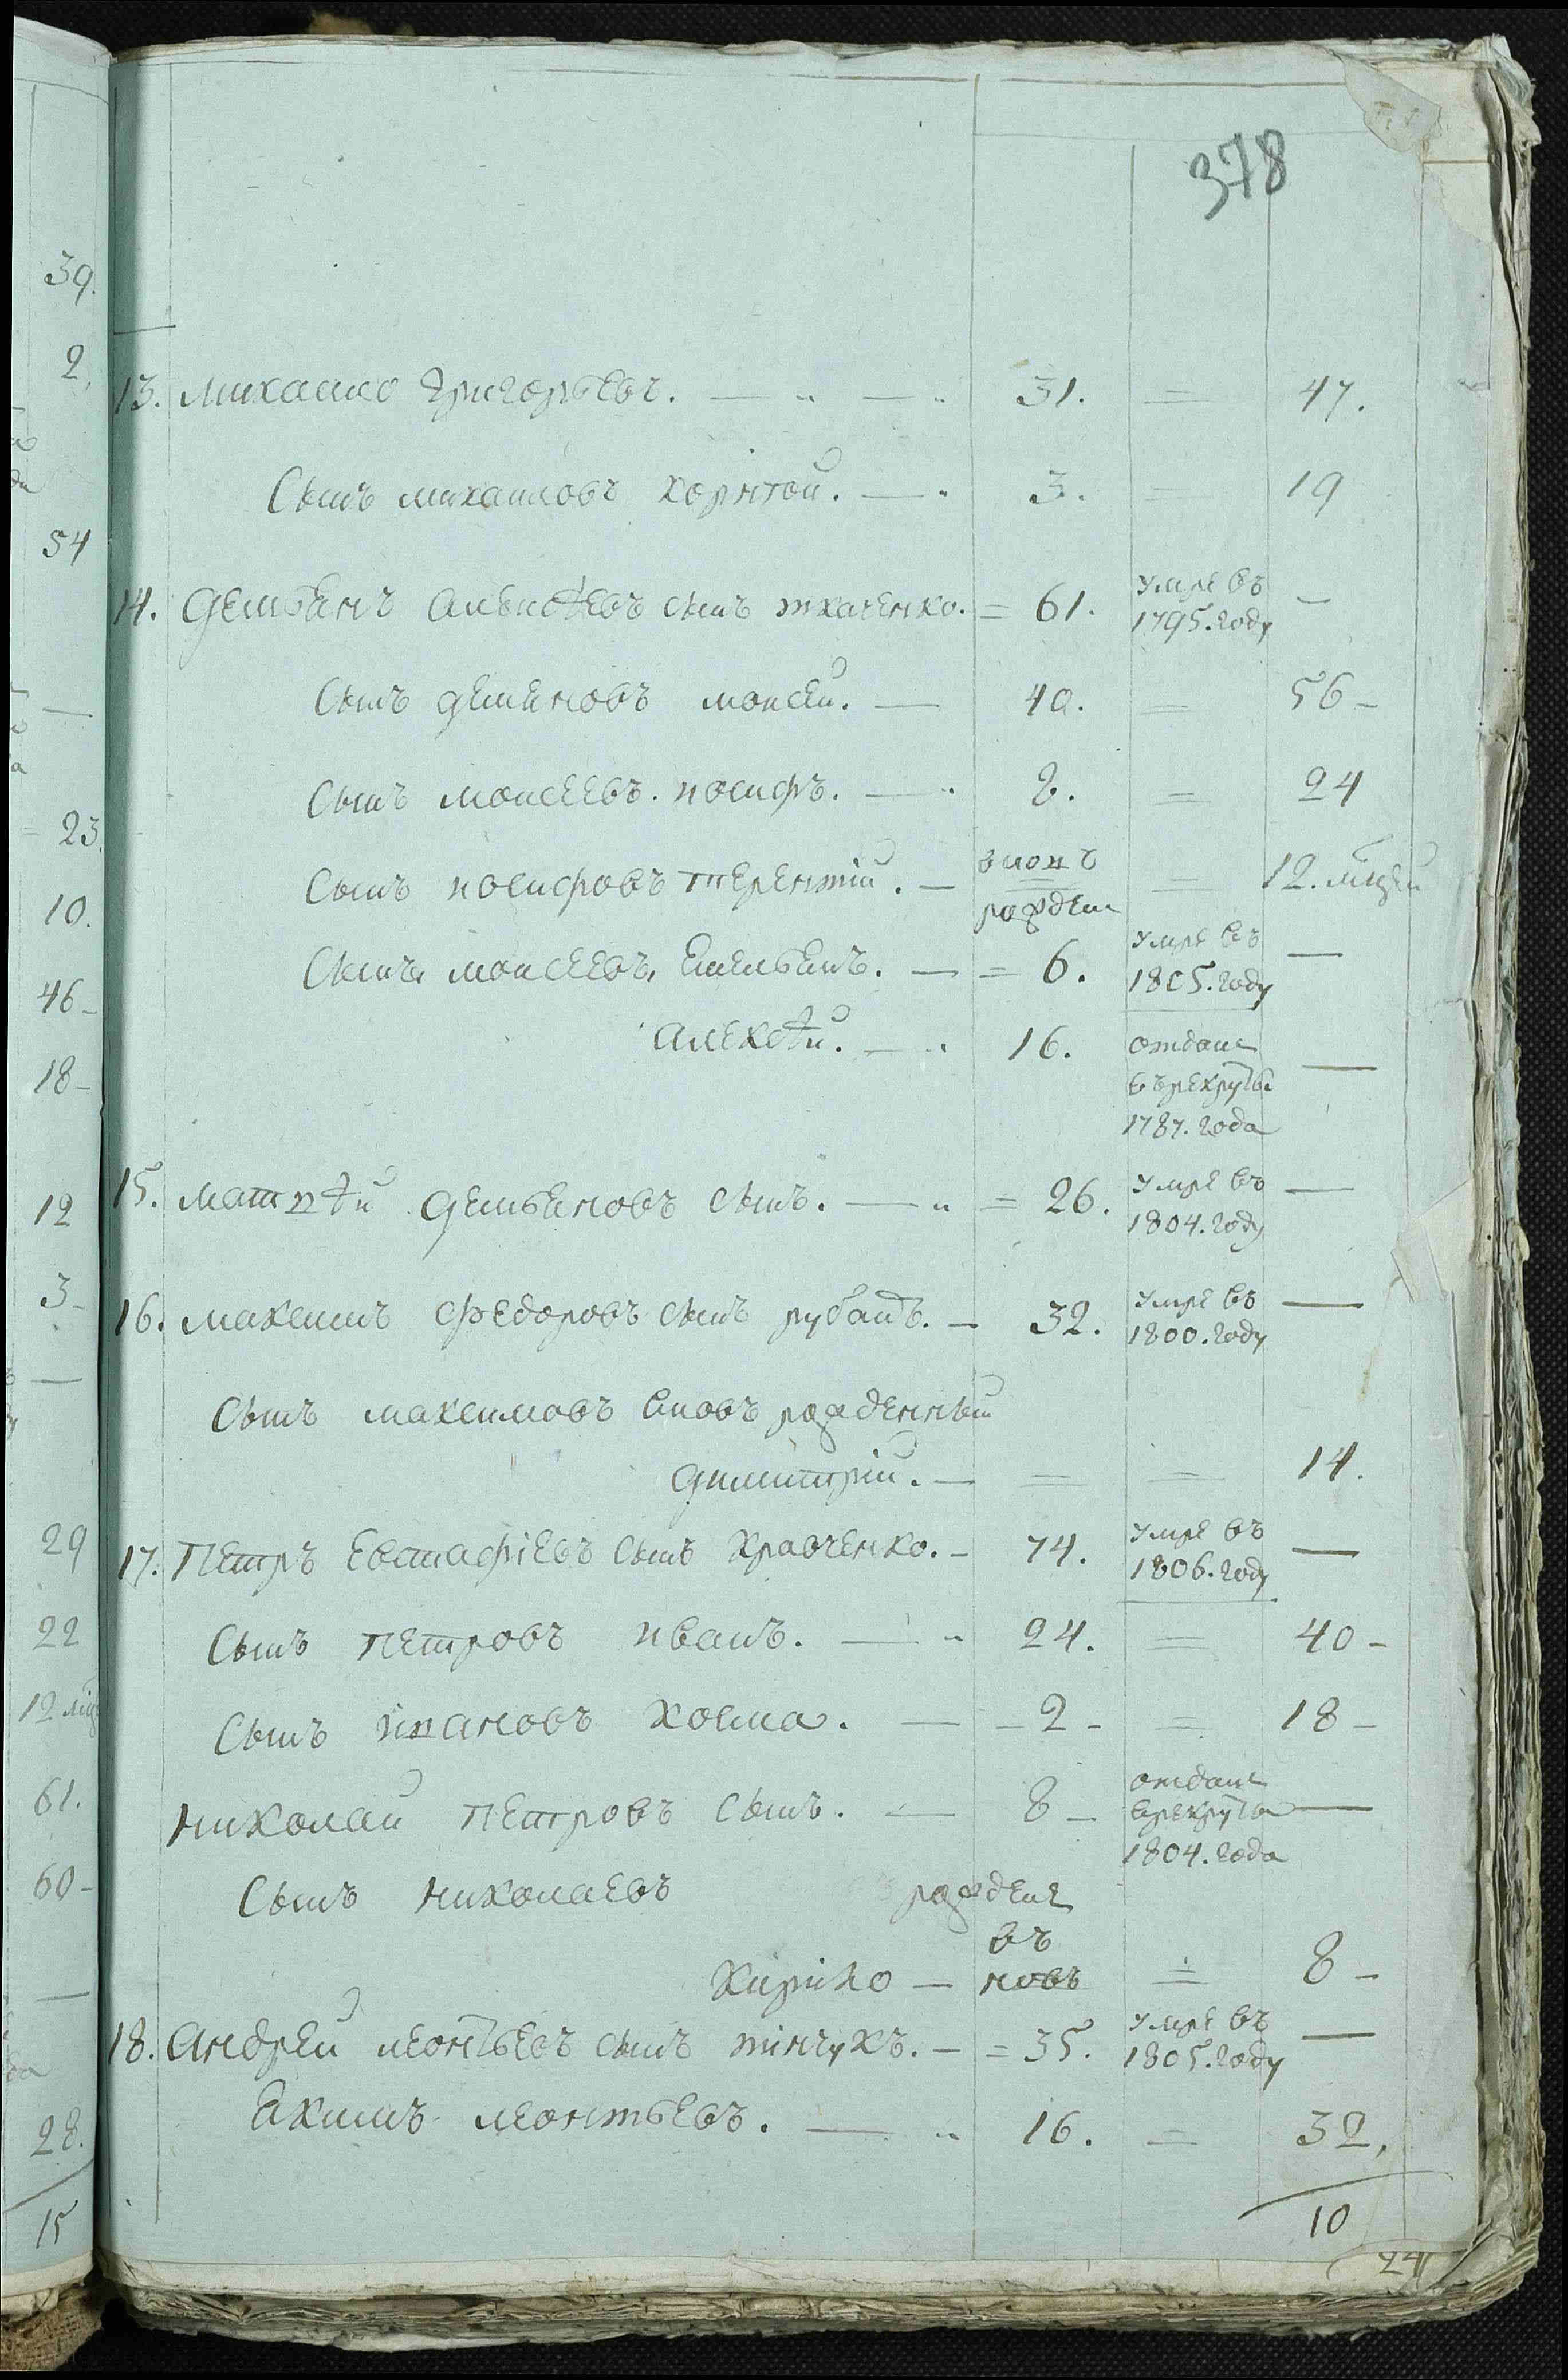 378
13. Михаило Григорьевъ. — " — " 31. = 47.
Сынъ михаиловъ корнѣй. — " 3. = 19
14. Демьянъ Алексѣевъ сынъ ткаченко. = 61. умре въ 1795. году —
Сынъ демяновъ моисеи. — 40. = 56 -
Сынъ моисеевъ. иосифъ. — " 8. = 24
Сынъ иосифовъ терентій. — вновъ рожден = 12. мцей
Сынъ, моисеевъ, Емельянъ. — = 6. умре въ 1805. году —
Алексѣй. — " 16. отдане въ рекруты 1787. года —
15. Матвѣй Демьяновъ сынъ. — " = 26. умре въ 1804. году —
16. Максимъ Федоровъ сынъ рубанъ. — 32. умре въ 1800. году —
Сынъ максимовъ вновъ рожденный
Димитрій. — = = 14.
17. Петръ Евстафіевъ сынъ Кравченко. - 74. умре въ 1806. году —
Сынъ петровъ иванъ. — " 24. = 40 -
Сынъ ивановъ косма. — - 2 - = 18 -
Николаи петровъ сынъ. — 8 - отдане врекруты 1804. года —
Сынъ николаевъ рождене
въ
Киріко — новъ = 8 -
18. Андреи леонтьевъ сынъ тінчукъ. - = 35. умре въ 1805. году —
Екимъ леонтьевъ. — " 16. = 32.
10
24
39.
2,
54
—
23.
10.
46 -
18 -
12
3 -
—
29
22
12 мц
61.
60 -
—
28.
15